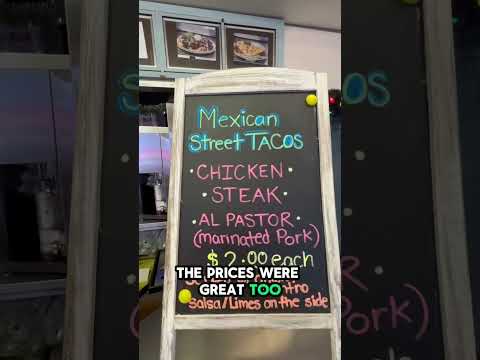 Mexican
Street TACOS
• CHICKEN •
• STEAK •
• AL PASTOR •
(marinated Pork)
$2.00 each
THE PRICES WERE
GREAT TOO
Salsa/Limes on the side